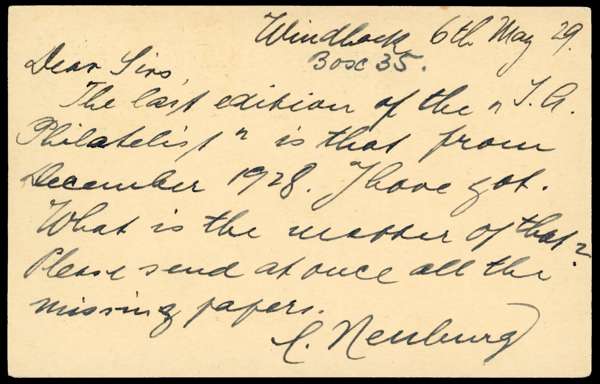 Windhoek 6th May 29.
Box 35.
Dear Sirs,
The last edition of the „S.A.
Philatelist" is that from
December 1928. I have got.
What is the matter of that?
Please send at once all the
missing papers.
C. Neuburg